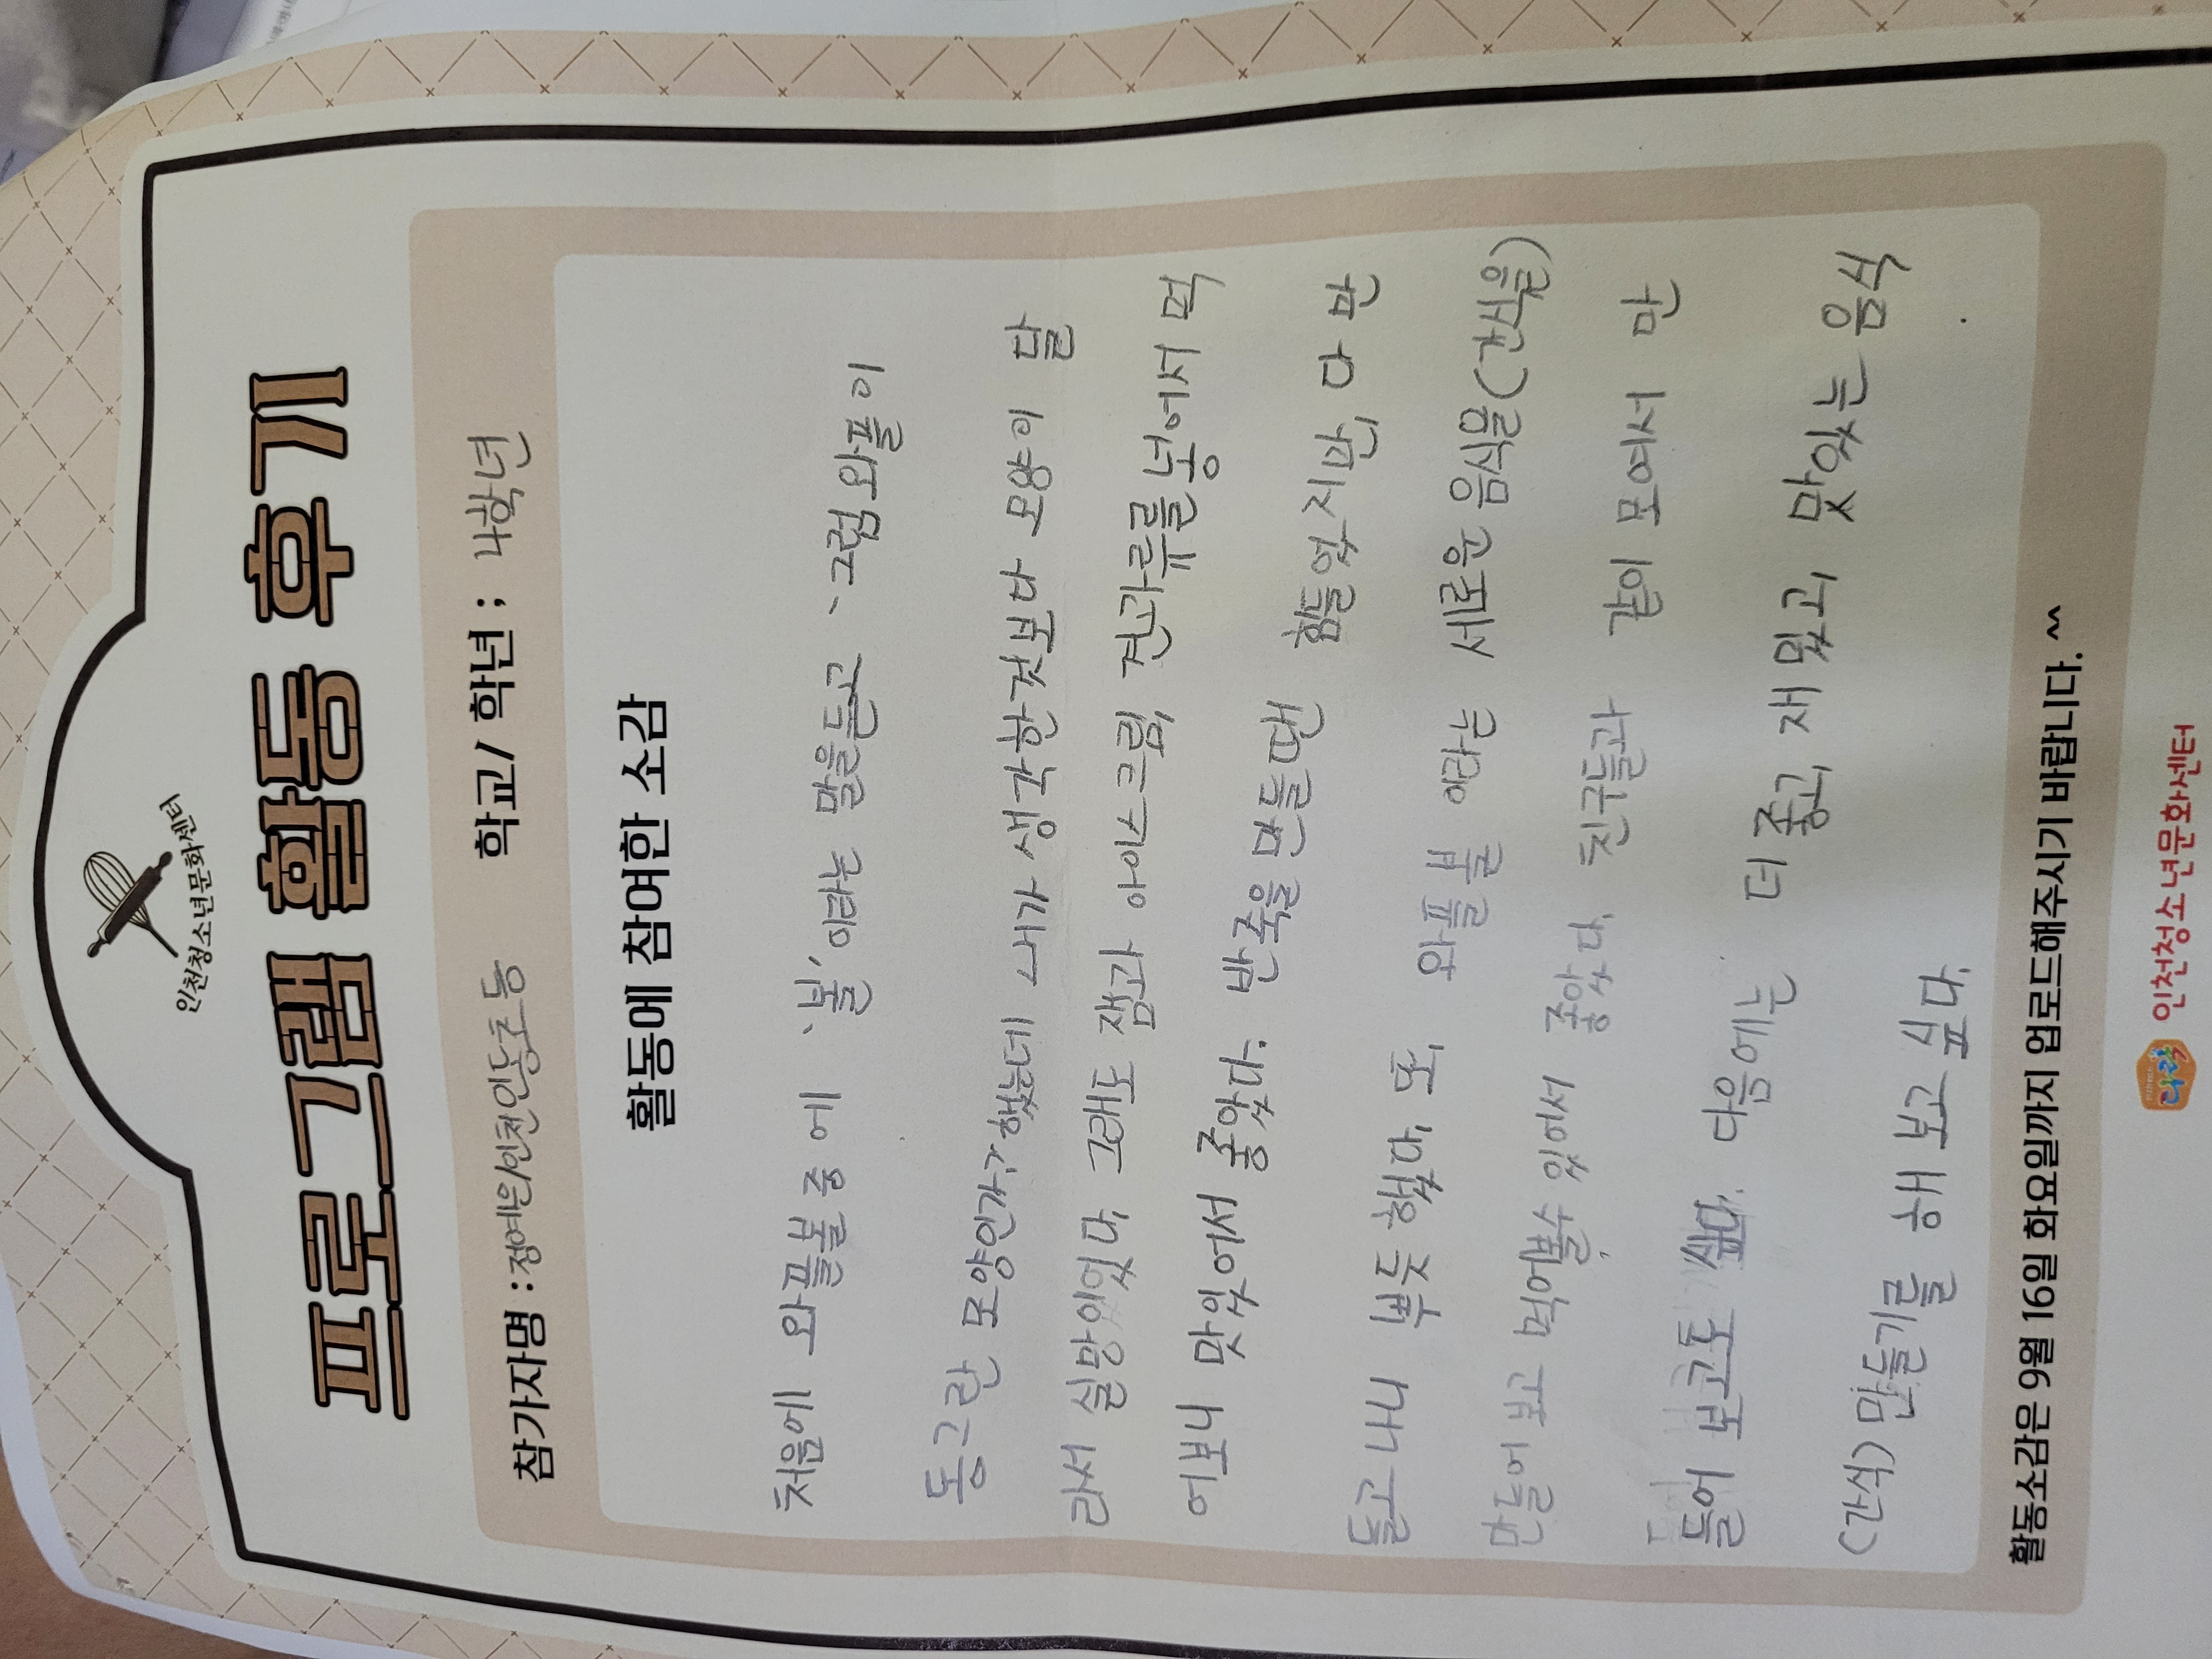 인천청소년문화센터
프로그램 활동 후기
참가자명 : 정예은/인천인동초등 학교/ 학년 : 4학년
활동에 참여한 소감
처음에 와플볼 중에 '볼'이라는 말을듣고 '그럼 와플이
동그란 모양인가?' 했는데 내가 생각한것보다 모양이 달
라서 실망이었다. 그래도 잼과 아이스크림, 견과류를 넣어서 먹
어보니 맛있어서 좋았다. 반죽을 만들땐 힘들었지만, 다 만
들고나니 뿌듯했다. 또, 와플볼 이라는 세로운 음식을(간식을)
만들어 보고 먹어볼수 있어서 좋았다. 친구들과 같이 모여서 만
들어 보고도 싶다. 다음에는 더 좋고, 재밌고, 맛있는 음식
(간식) 만들기를 해 보고 싶다.
활동소감은 9월 16일 화요일까지 업로드해주시기 바랍니다. ^^
다락 인천청소년문화센터